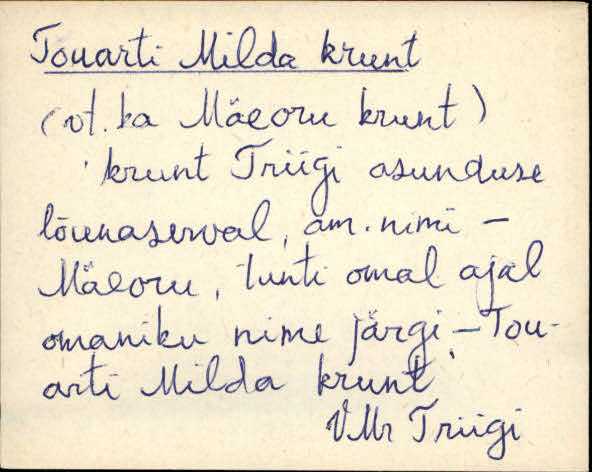 Touarti Milda krunt
(vt. ka Mäeoru krunt)
' krunt Triigi asunduse
lõunaserval, am. nimi -
Mäeoru, tunti omal ajal
omaniku nime järgi - Tou-
arti Milda krunt'
VMr Triigi